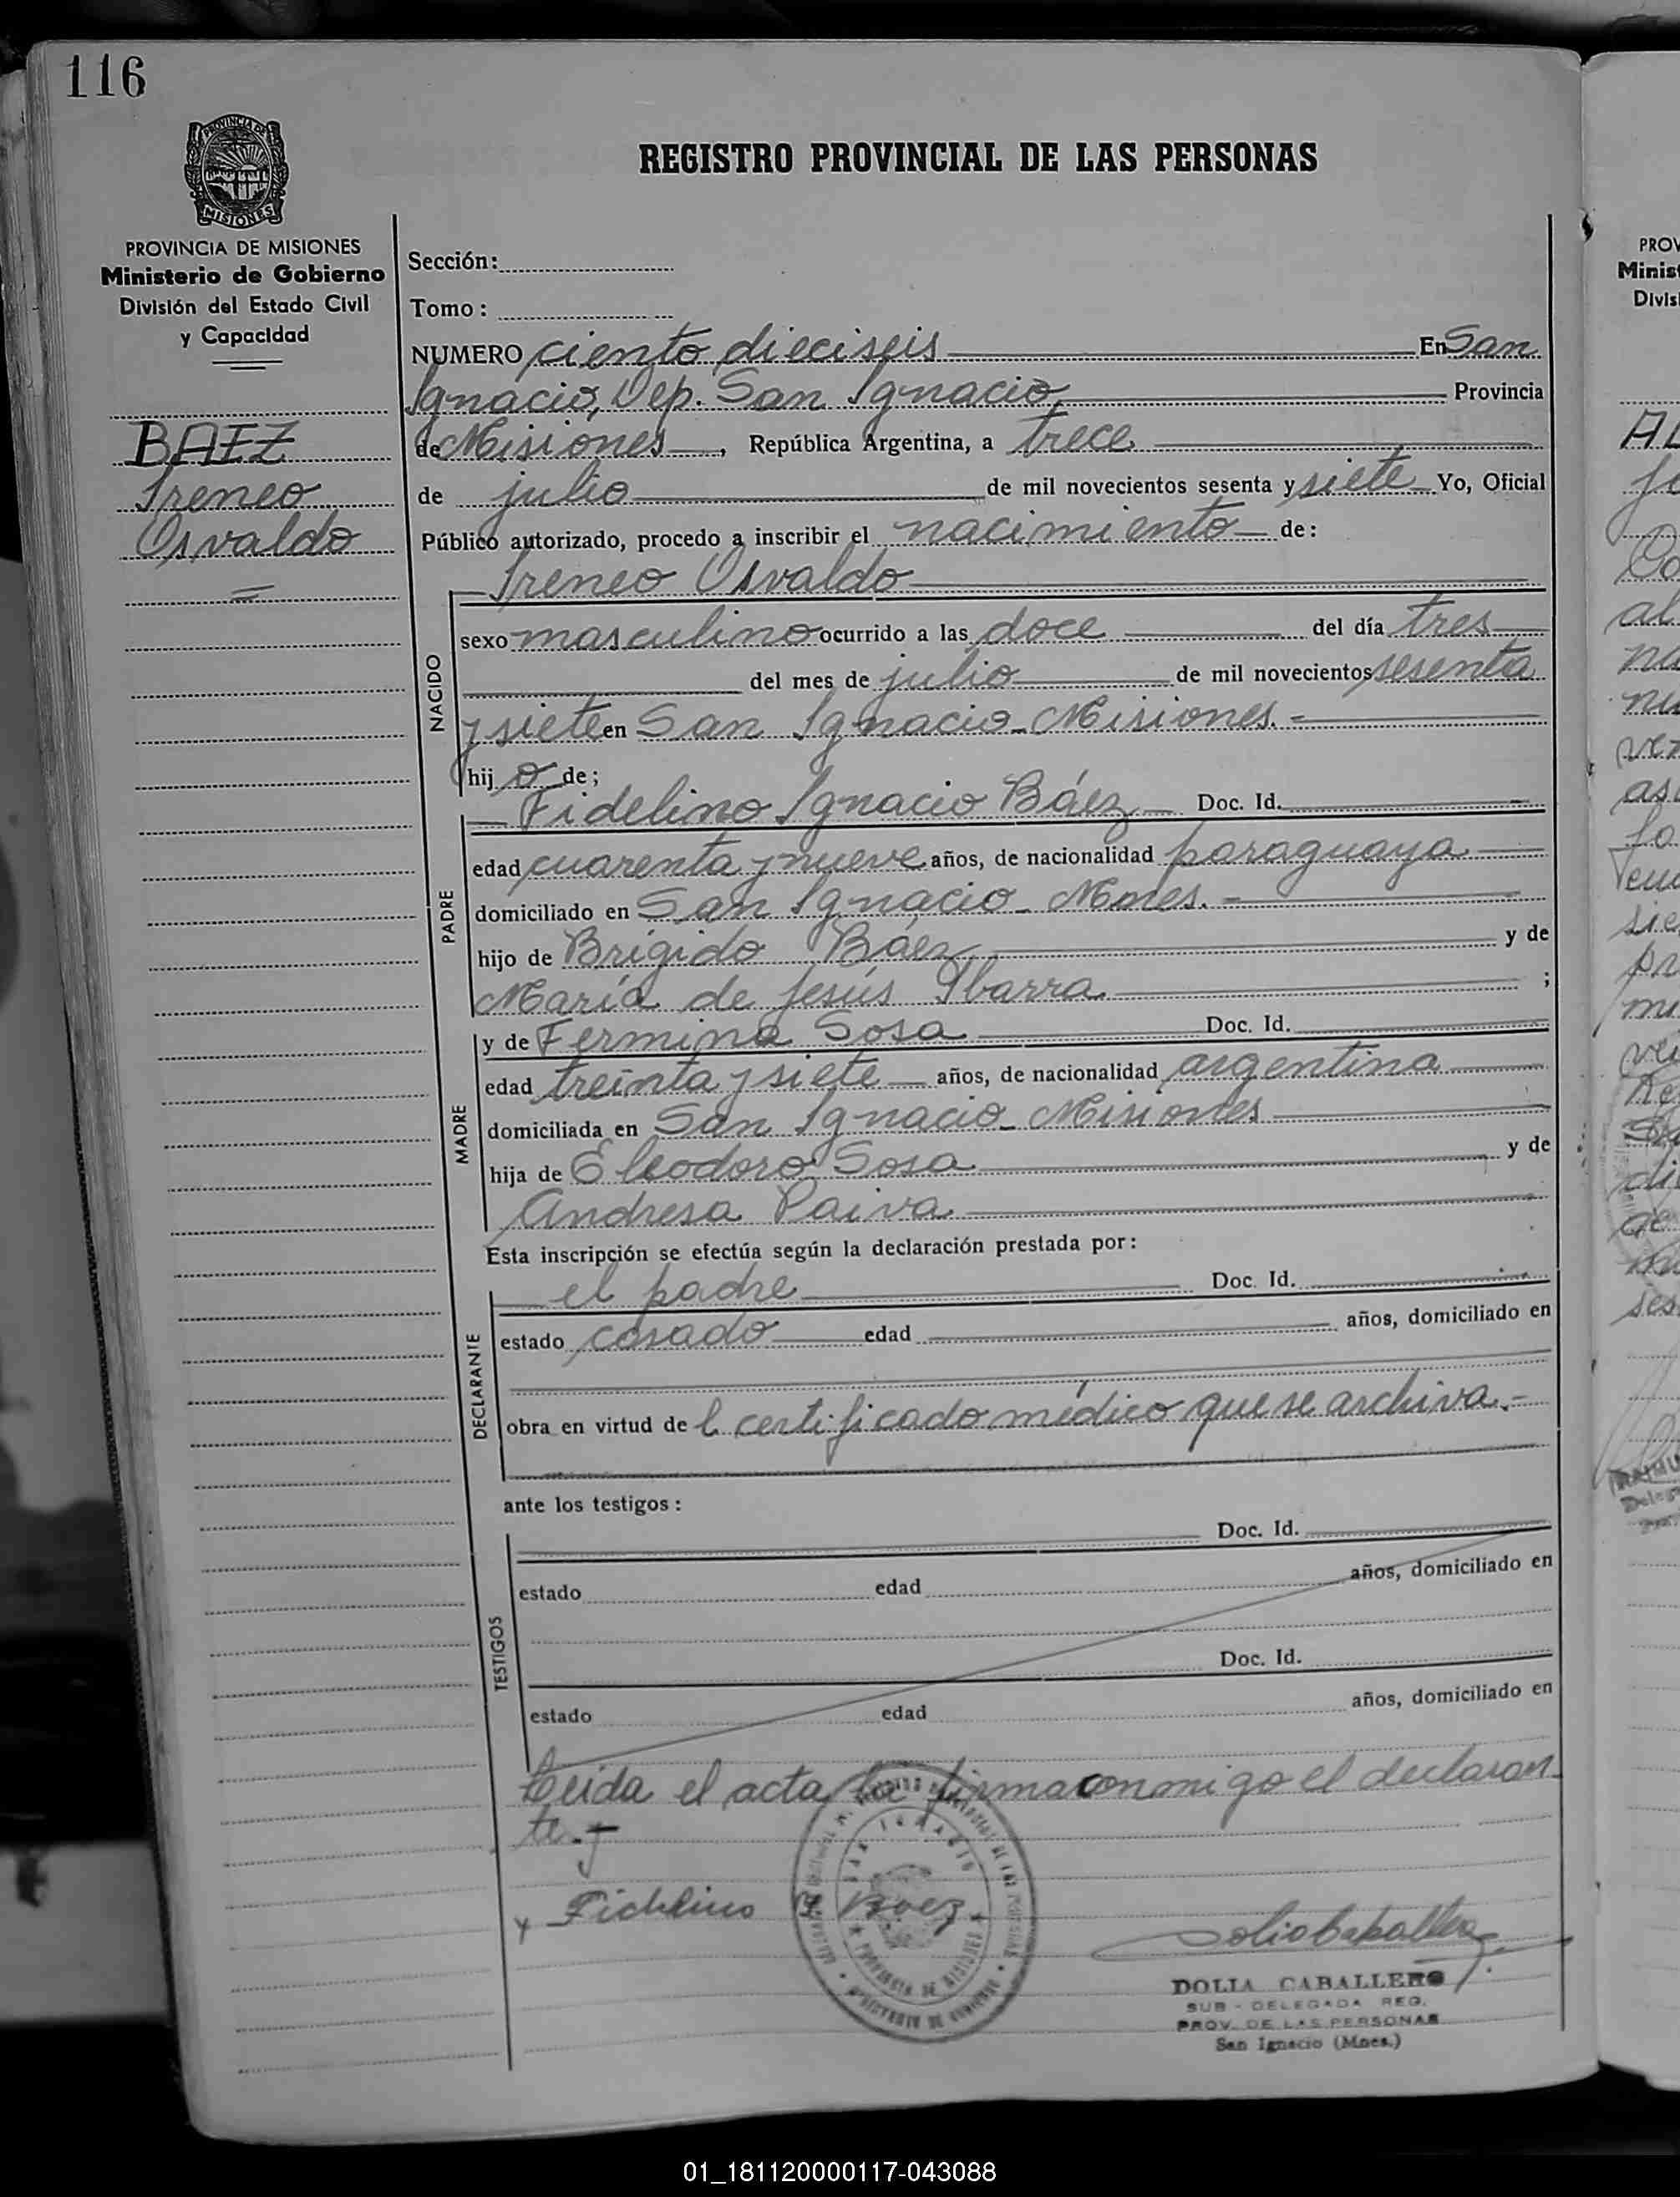 116
PROVINCIA DE
MISIONES
REGISTRO PROVINCIAL DE LAS PERSONAS
PROVINCIA DE MISIONES
Ministerio de Gobierno
División del Estado Civil
y Capacidad
BAEZ
Ireneo
Osvaldo
Sección:
Tomo:
NUMERO ciento dieciseis En San
Ignacio, Dep. San Ignacio, Provincia
de Misiones, República Argentina, a trece
de julio de mil novecientos sesenta y siete Yo, Oficial
Público autorizado, procedo a inscribir el nacimiento de:
Ireneo Osvaldo
NACIDO
sexo masculino ocurrido a las doce del día tres
del mes de julio de mil novecientos sesenta
y siete en San Ignacio - Misiones. -
hijo de;
PADRE
Fidelino Ignacio Báez Doc. Id.
edad cuarenta y nueve años, de nacionalidad paraguaya
domiciliado en San Ignacio - Mnes. -
hijo de Brígido Báez y de
María de Jesús Ibarra ;
MADRE
y de Fermina Sosa Doc. Id.
edad treinta y siete años, de nacionalidad argentina
domiciliada en San Ignacio - Misiones
hija de Eleodoro Sosa y de
Andresa Paiva
Esta inscripción se efectúa según la declaración prestada por:
DECLARANTE
el padre Doc. Id.
estado casado edad años, domiciliado en
obra en virtud del certificado médico que se archiva. -
ante los testigos:
TESTIGOS
Doc. Id.
estado edad años, domiciliado en
Doc. Id.
estado edad años, domiciliado en
Leida el acta la firma conmigo el declaran-
te. -
Fidelino I. Baez
SAN IGNACIO
PROVINCIA DE MISIONES
MINISTERIO DE GOBIERNO
DOLIA CABALLERO
SUB - DELEGADA REG.
PROV. DE LAS PERSONAS
San Ignacio (Mnes.)
PROV
Minist
Divis
01_181120000117-043088